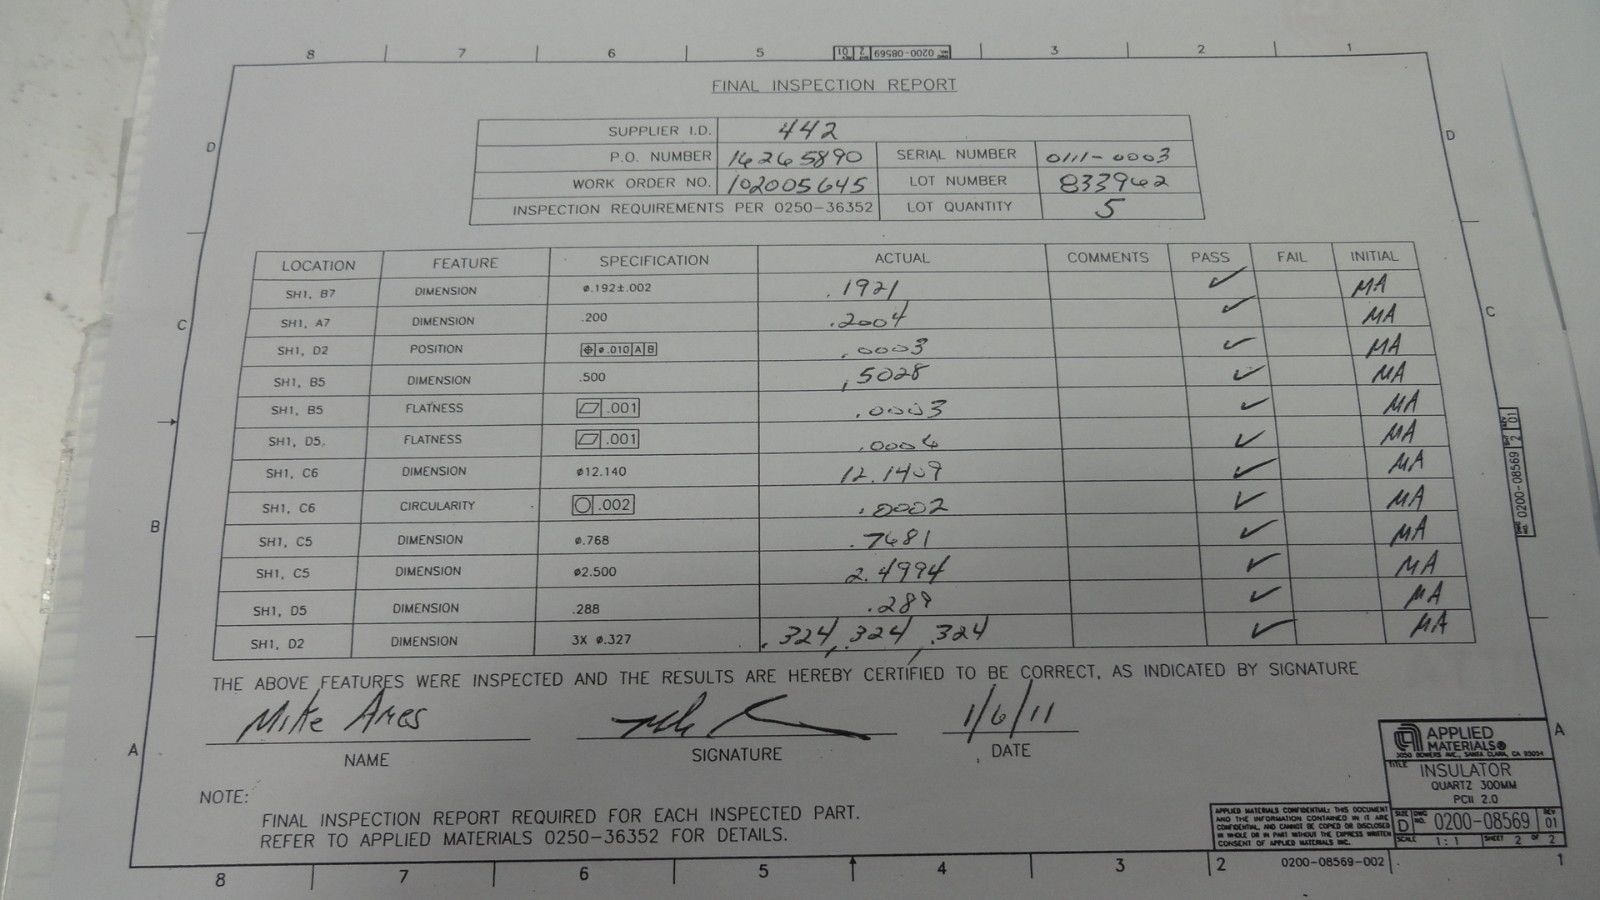 8 7 6 5 0200-08569 2 01 3 2 1
FINAL INSPECTION REPORT
SUPPLIER I.D. 442
P.O. NUMBER 16265890 SERIAL NUMBER 0111-0003
WORK ORDER NO. 102005645 LOT NUMBER 833962
INSPECTION REQUIREMENTS PER 0250-36352 LOT QUANTITY 5
LOCATION FEATURE SPECIFICATION ACTUAL COMMENTS PASS FAIL INITIAL
SH1, B7 DIMENSION ⌀.192±.002 .1921 ✓ MA
SH1, A7 DIMENSION .200 .2004 ✓ MA
SH1, D2 POSITION ⌖ ⌀.010 A B .0003 ✓ MA
SH1, B5 DIMENSION .500 .5028 ✓ MA
SH1, B5 FLATNESS ⏥ .001 .0003 ✓ MA
SH1, D5, FLATNESS ⏥ .001 .0004 ✓ MA
SH1, C6 DIMENSION ⌀12.140 12.1409 ✓ MA
SH1, C6 CIRCULARITY ○ .002 .0002 ✓ MA
SH1, C5 DIMENSION ⌀.768 .7681 ✓ MA
SH1, C5 DIMENSION ⌀2.500 2.4994 ✓ MA
SH1, D5 DIMENSION .288 .289 ✓ MA
SH1, D2 DIMENSION 3X ⌀.327 .324, .324, .324 ✓ MA
THE ABOVE FEATURES WERE INSPECTED AND THE RESULTS ARE HEREBY CERTIFIED TO BE CORRECT, AS INDICATED BY SIGNATURE
Mike Ames 1/6/11
NAME SIGNATURE DATE
NOTE:
FINAL INSPECTION REPORT REQUIRED FOR EACH INSPECTED PART.
REFER TO APPLIED MATERIALS 0250-36352 FOR DETAILS.
D
C
B
A
D
C
0200-08569 2 01
A
APPLIED
MATERIALS®
3050 BOWERS AVE., SANTA CLARA, CA 95054
TITLE
INSULATOR
QUARTZ 300MM
PCII 2.0
APPLIED MATERIALS CONFIDENTIAL: THIS DOCUMENT
AND THE INFORMATION CONTAINED IN IT ARE
CONFIDENTIAL AND CANNOT BE COPIED OR DISCLOSED
IN WHOLE OR IN PART WITHOUT THE EXPRESS WRITTEN
CONSENT OF APPLIED MATERIALS INC.
SIZE D DWG NO. 0200-08569 REV 01
SCALE 1:1 SHEET 2 OF 2
8 7 6 5 4 3 2 0200-08569-002 1